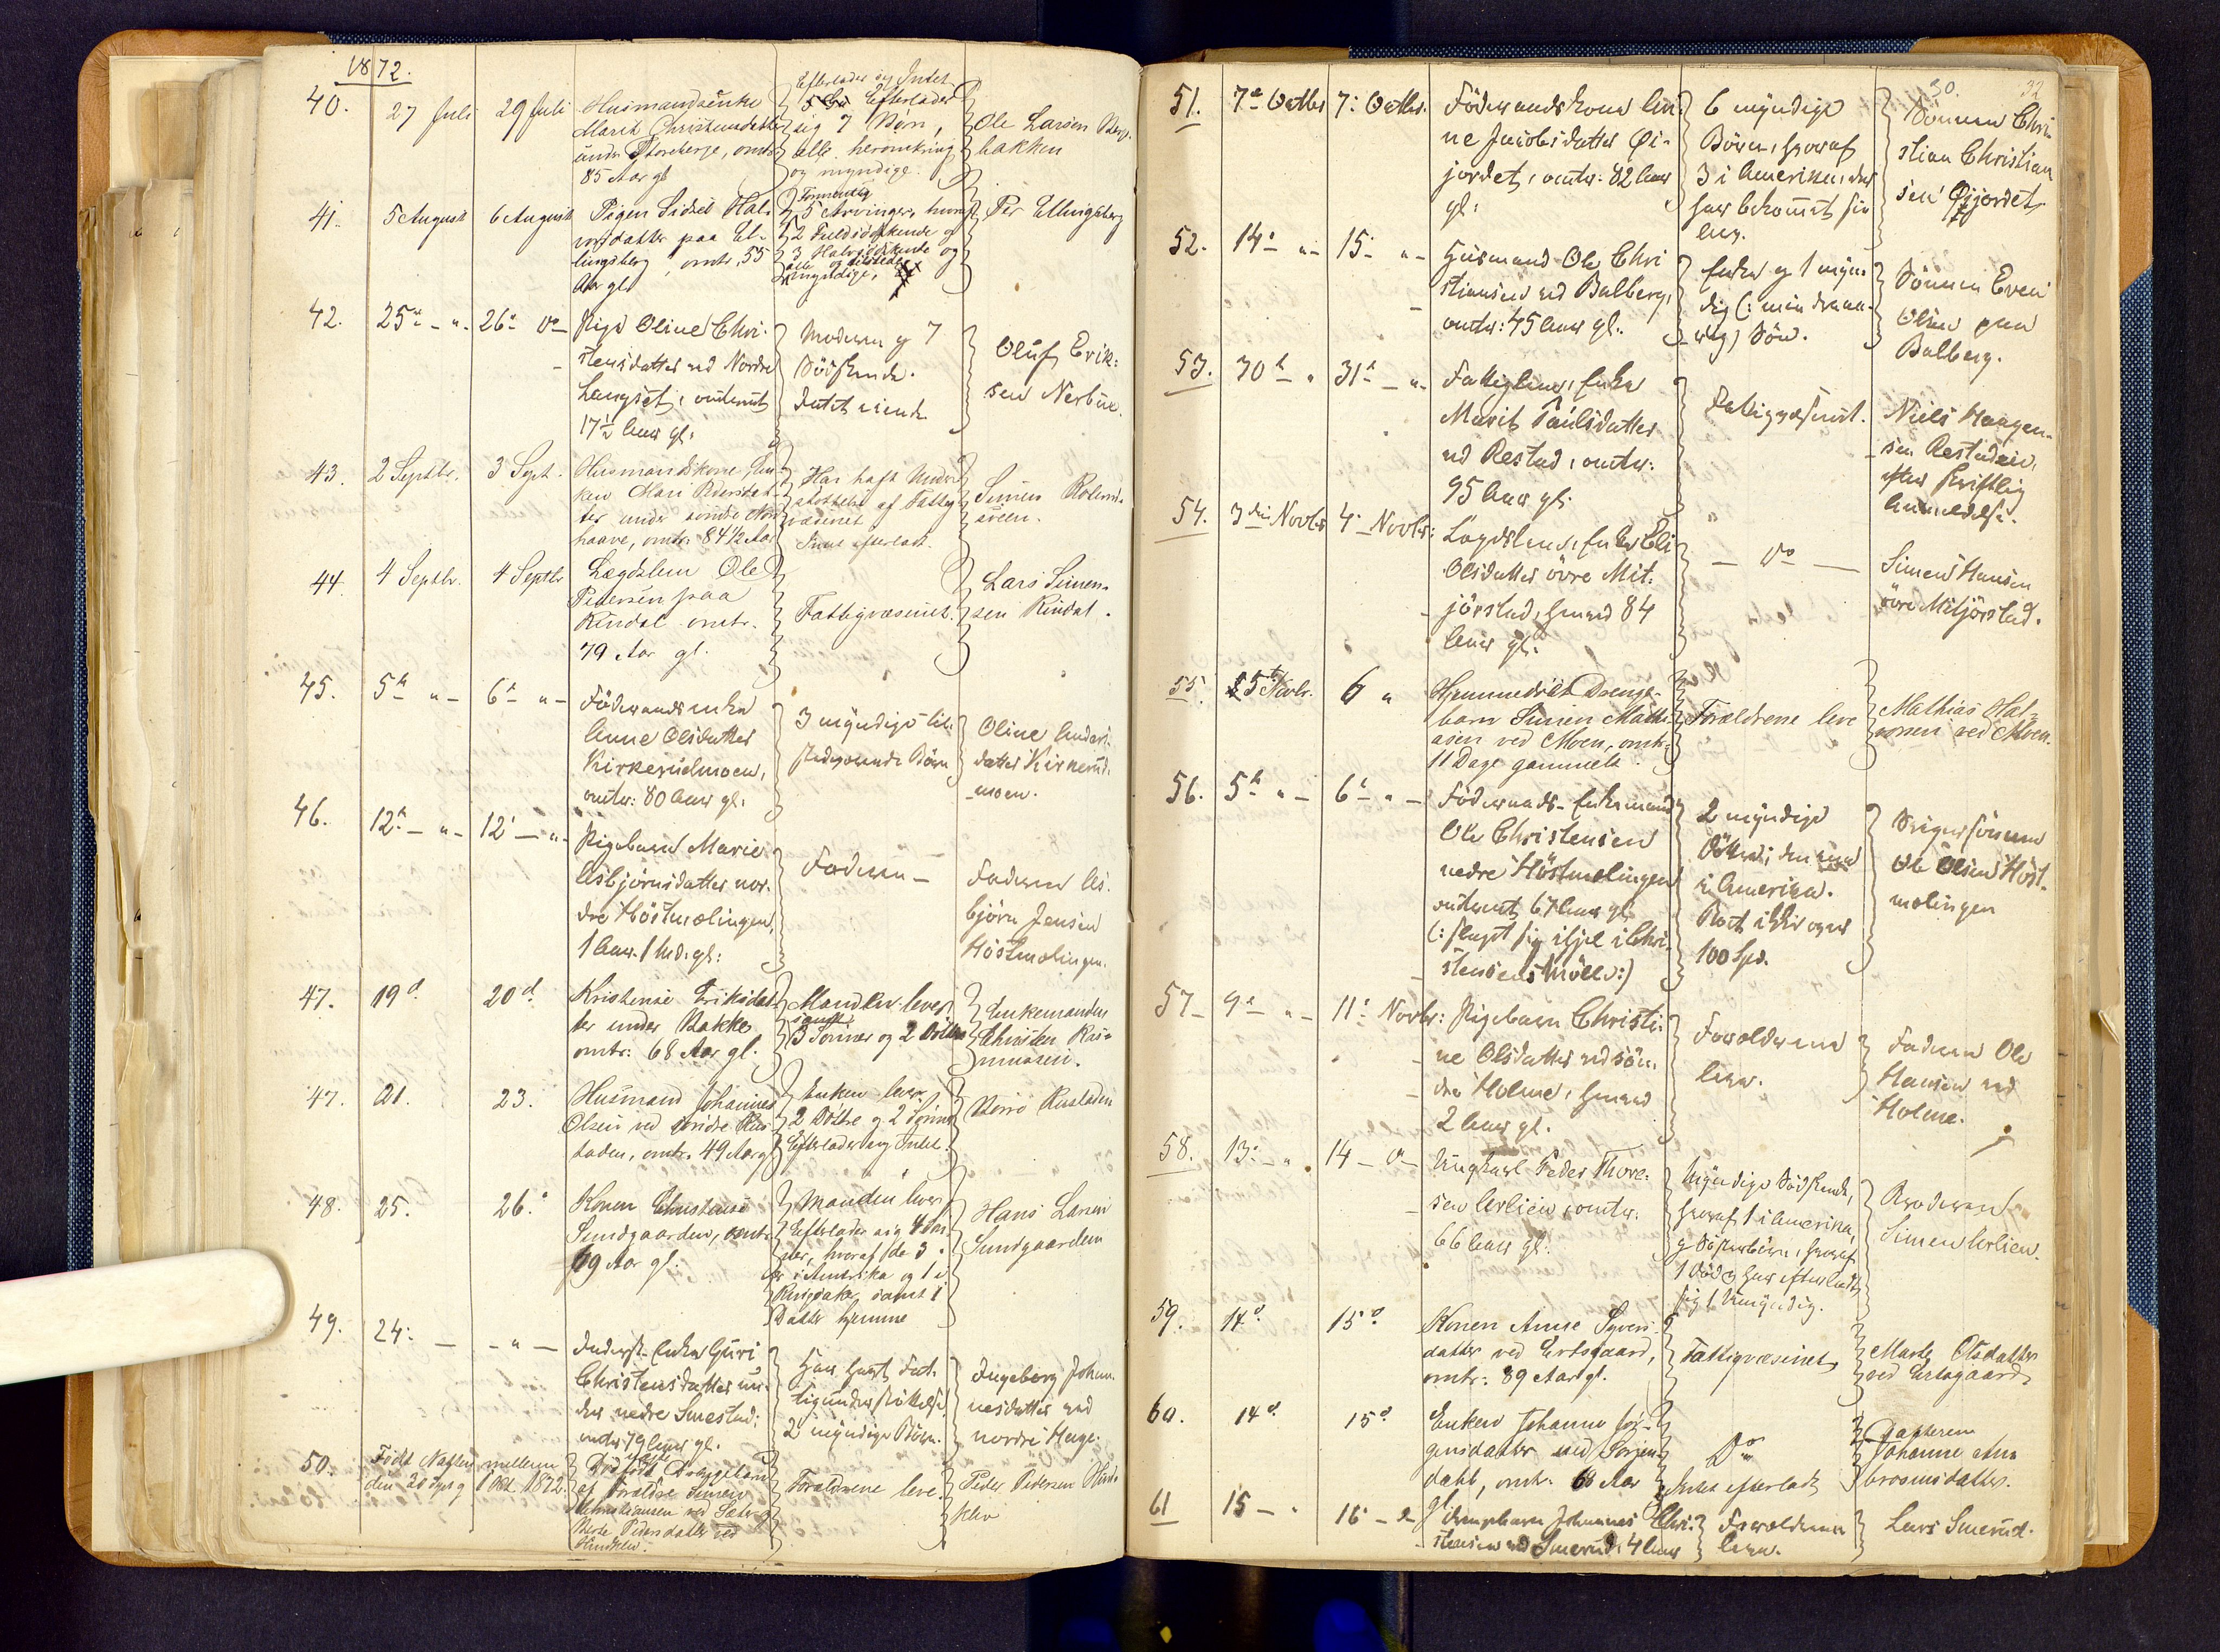 1872.
40. 27 Juli 29 Juli Husmandsenke
Marit Christensdatter
under Storeberge, omtr.
85 Aar gl
Efterlader sig Intet
Efterlader
sig 7 Børn,
alle heromkring
og myndige.
Ole Larsen Berg-
bakken
41. 5 August 6 August Pigen Sidsel Hal-
vorsdatter paa El-
lingsberg, omtr. 55
Aar gl.
Formentlig
5 Arvinger, hvoraf
2 Fuldsødskende og
3 Halvsødskende og
alle
myndige.
Per Ellingsberg
42. 25de - " - 26de do - Pige Oline Chri-
stensdatter ved Nordre
Langset, omtrent
17 1/2 Aar gl:
Moderen og 7
Södskende.
Intet eiende.
Oluf Erik-
sen Nerbue.
43. 2 Septbr. 3 Sept. Husmandskone En-
ken Mari Pedersdat-
ter under søndre Nord
haave, omtr. 84 1/2 Aar
Har haft Under
støttelse af Fattig
væsenet
Intet efterladt.
Simen
44. 4 Septbr. 4 Septbr Lægdslem Ole
Pedersen paa
Rindal omtr.
79 Aar gl.
Fattigvæsenet.
Lars Simen-
sen Rindal.
45. 5te " - 6te " - Föderaadsenke
Anne Olsdatter
Kirkerudmoen,
omtr: 80 Aar gl.
3 myndige til-
stedeværende Börn
Oline Anders-
datter Kirkerud-
moen.
46. 12te - " - 12te - " - Pigebarn Marie
Asbjörnsdatter nor-
dre Höstmælingen,
1 Aar 1 Md. gl:
Faderen -
Faderen As-
björn Jensen
Höstmælingen.
47. 19d. 20d. Kristense Eriksdat-
ter under Bakke
omtr: 68 Aar gl.
Manden lever
samt
3 Sønner og 2 Døttre
Enkemanden
Christen Ras-
mussen.
47. 21. 23. Husmand Johannes
Olsen ved søndre Rus-
taden, omtr. 49 Aar gl
Enken lever
2 Døttre og 2 Sønner
Efterlader sig Intet.
Rustaden
48. 25. 26. Konen Christense
Sundgaarden, omtr
69 Aar gl.
Manden lever
Efterlader sig 4 Søn-
ner, hvoraf de 3
er i Amerika og 1 i
Ringsaker samt 1
Datter hjemme
Hans Larsen
Sundgaarden
49. 24: - - " - Inderst-Enke Guri
Christensdatter un-
der nedre Smestad:
omtr 79 Aar gl.
Har havt Fat-
tigunderstöttelse.
2 myndige Börn.
Ingeborg Johan-
nesdatter ved
nordre Hage.
50. Født Natten mellem
den 30 Sept og 1 Okt. 1872.
Dødfødt Drengebarn
af Forældre Simen
Christiansen ved Sæter og
Marte Pedersdatter ved
Forældrene leve
Peder Pedersen
30. 32
51. 7de Octbr 7: Octbr. Föderaadskone Li-
ne Jacobsdatter Öi-
jordet, omtr: 82 Aar
gl:
6 myndige
Börn, hvoraf
3 i Amerika, der
har bekommet sin
Arv.
Sönnen Chri-
stian Christian-
sen Öijordet
52. 14: " - 15: " - Husmand Ole Chri
stiansen ved Balberg,
omtr: 45 Aar gl:
Enke og 1 myn-
dig
Sön.
Sönnen Even
Olsen paa
Balberg.
53. 30te - " 31te - " - Fattiglem, Enke
Marit Paulsdatter
ved Restad, omtr:
95 Aar gl:
Fattigvæsenet.
Niels Haagen-
sen Restadeie,
efter skriftlig
Anmeldelse.
54. 3die Novbr 4: Novbr: Lægdslem, Enke Eli
Olsdatter övre Mit-
jörstad, henved 84
Aar gl:
- do -
Simen Hansen
övre Mitjörstad.
55. 5te Novbr. 6 " Hjemmedøbt Drenge-
barn Simen Mathi-
asen ved Moen, omtr.
11 Dage gammelt.
Forældrene leve
Mathias Hal-
vorsen ved Moen.
56. 5te " - 6te " - Föderaads-Enkemand
Ole Christensen
nedre Höstmælingen
omtrent 67 Aar gl
(: slaget sig ihjel i Chri-
stensens Mölle:)
2 myndige
Döttre; den ene
i Amerika.
Boet ikke over
100 Spd.
Svigersönnen
Ole Olsen Höst-
mælingen
57 - 9de " - 11: Novbr: Pigebarn Christi-
ne Olsdatter ved sön-
dre Holme, henved
2 Aar gl.
Forældrene
leve.
Faderen Ole
Hansen ved
Holme.
58. 13: - " . 14 - do - Ungkarl Peder Thore-
sen Lerlien, omtr.
66 Aar gl:
Myndige Södskende,
hvoraf 1 i Amerika,
og Södskebörn, hvoraf
1 død og har efterladt
sig 1 Umyndig.
Broderen
Simen Lerlien.
59. 14d. 15d. Konen Anne Syvers-
datter ved Ertsgaard,
omtr: 89 Aar gl.
Fattigvæsenet
Marte Olsdatter
ved Ertsgaard
60. 14d. 15d. Enken Johanne Jör-
gensdatter ved
omtr. 68 Aar
gl
Do
Intet efterladt
Datteren
Johanne Am-
brosiusdatter.
61 15 - " 16 - d - Drengebarn Johannes Chri-
stensen ved Smerud, 4 Aar
Forældrene
leve.
Lars Smerud.